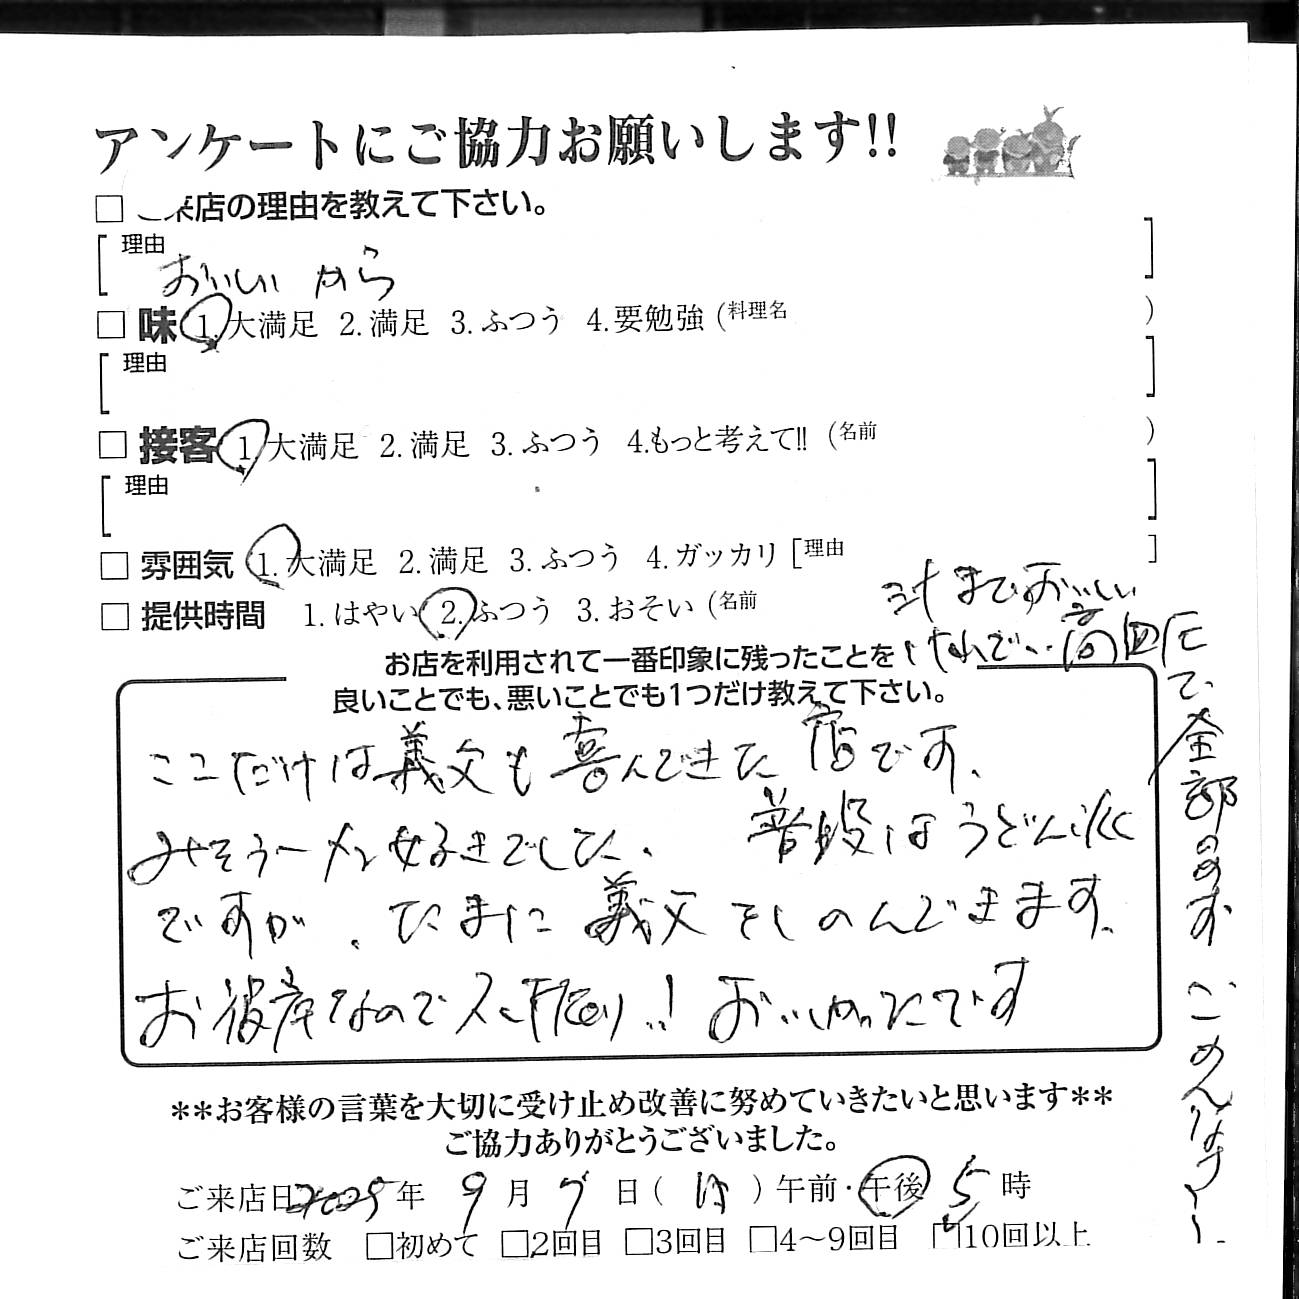 アンケートにご協力お願いします!!
□ ご来店の理由を教えて下さい。
[理由
おいしいから ]
□ 味 1.大満足 2.満足 3.ふつう 4.要勉強 (料理名 )
[理由 ]
□ 接客 1.大満足 2.満足 3.ふつう 4.もっと考えて!! (名前 )
[理由 ]
□ 雰囲気 1.大満足 2.満足 3.ふつう 4.ガッカリ [理由 ]
□ 提供時間 1.はやい 2.ふつう 3.おそい (名前
お店を利用されて一番印象に残ったことを
良いことでも、悪いことでも1つだけ教えて下さい。
ここだけは義父も喜んできた店です、
みそラーメン好きでした。 普段はうどん派
ですが、たまに義父をしのんできます。
お彼岸なので
おいしかったです
汁までおいしい
けれど… 高血圧
で全部のめず ごめんなさい
**お客様の言葉を大切に受け止め改善に努めていきたいと思います**
ご協力ありがとうございました。
ご来店日 2025年 9月 7日( 日 )午前・午後 5時
ご来店回数 □初めて □2回目 □3回目 □4〜9回目 □10回以上